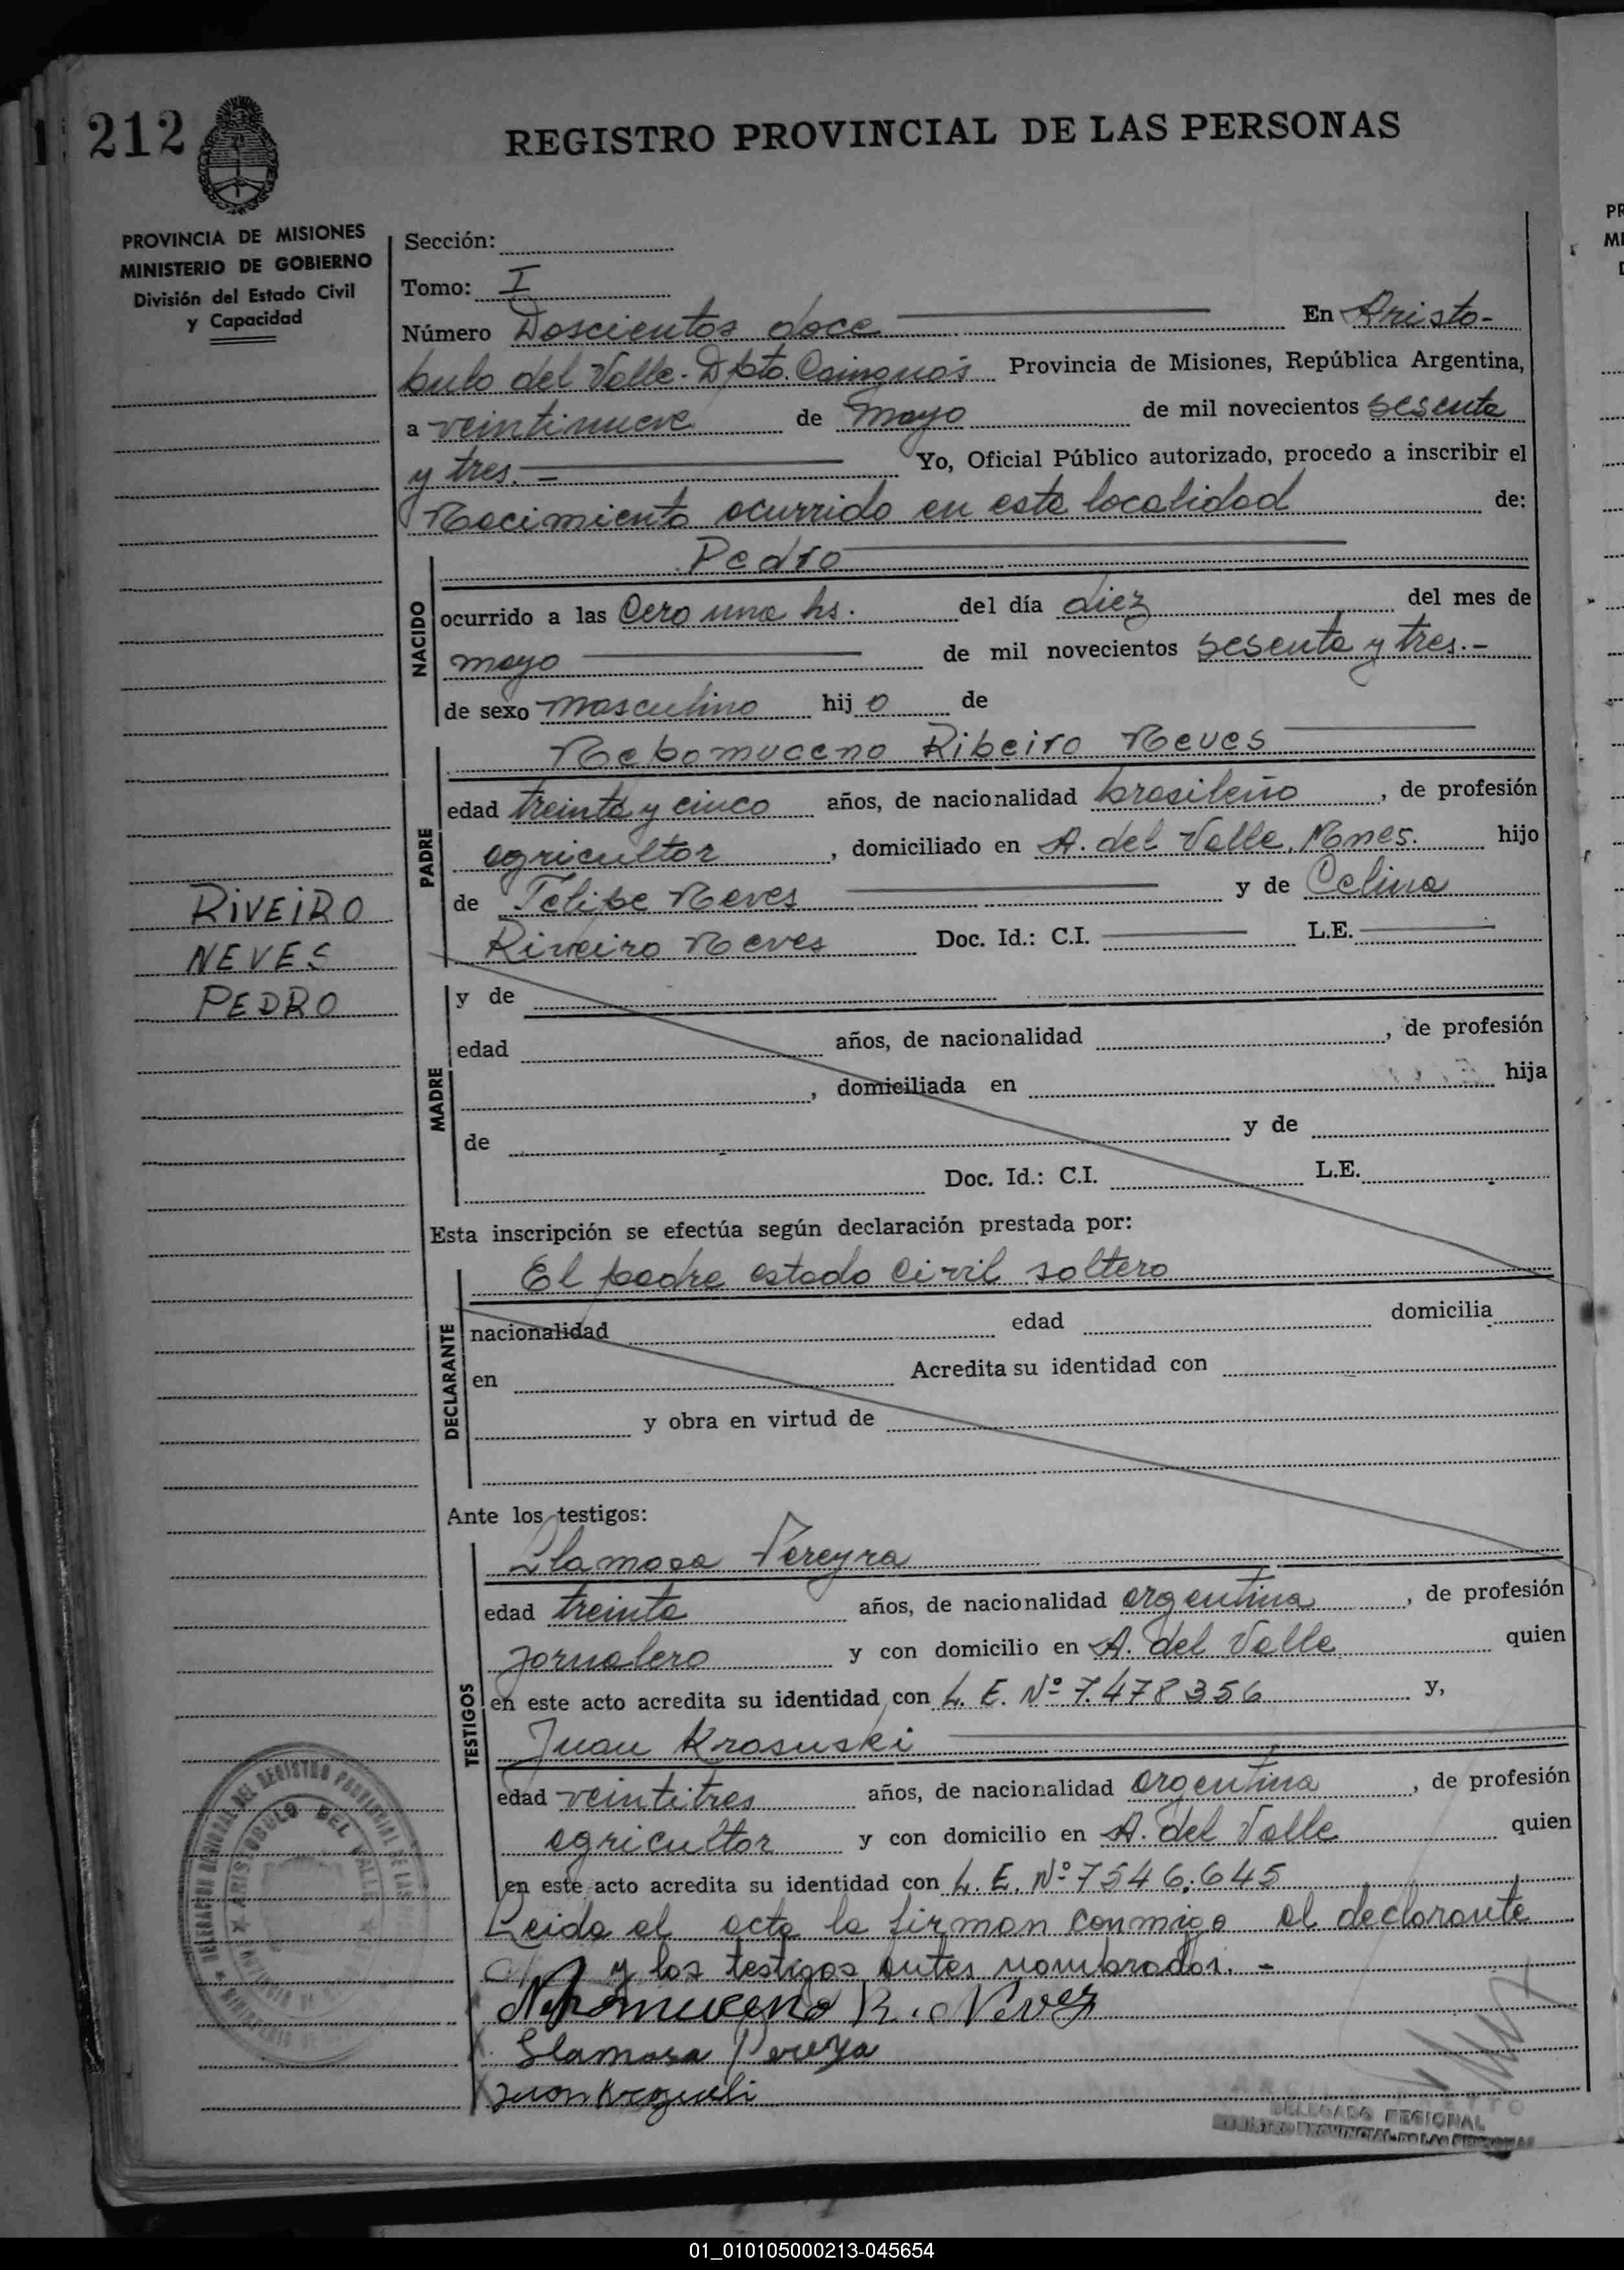 212
REGISTRO PROVINCIAL DE LAS PERSONAS
PROVINCIA DE MISIONES
MINISTERIO DE GOBIERNO
División del Estado Civil
y Capacidad
Sección:
Tomo: I
Número Doscientos doce En Aristo-
bulo del Valle. Dpto. Cainguás Provincia de Misiones, República Argentina,
a veintinueve de mayo de mil novecientos sesenta
y tres. - Yo, Oficial Público autorizado, procedo a inscribir el
Nacimiento ocurrido en esta localidad de:
Pedro
NACIDO
ocurrido a las Cero una hs. del día diez del mes de
mayo de mil novecientos sesenta y tres.-
de sexo masculino hijo de
PADRE
Nepomuceno Ribeiro Neves
edad treinta y cinco años, de nacionalidad brasileño, de profesión
agricultor, domiciliado en A. del Valle, Mnes. hijo
de Felipe Neves y de Celina
Riveiro Neves Doc. Id.: C.I. L.E.
RIVEIRO
NEVES
PEDRO
MADRE
y de
edad años, de nacionalidad , de profesión
, domiciliada en hija
de y de
Doc. Id.: C.I. L.E.
Esta inscripción se efectúa según declaración prestada por:
El padre estado civil soltero
DECLARANTE
nacionalidad edad domicilia
en Acredita su identidad con
y obra en virtud de
Ante los testigos:
TESTIGOS
Llamosa Pereyra
edad treinta años, de nacionalidad argentina, de profesión
jornalero y con domicilio en A. del Valle quien
en este acto acredita su identidad con L. E. Nº 7.478356 y,
Juan Krasuski
edad veintitres años, de nacionalidad argentina, de profesión
agricultor y con domicilio en A. del Valle quien
en este acto acredita su identidad con L. E. Nº 7546.645
Leida el acta la firman conmigo el declarante
y los testigos antes nombrados. -
Nepomuceno R. Neves
Llamosa Pereyra
Juan
DELEGADO REGIONAL
REGISTRO PROVINCIAL DE LAS PERSONAS
DELEGACION REGIONAL DEL REGISTRO PROVINCIAL DE LAS
ARISTOBULO DEL VALLE
01_010105000213-045654